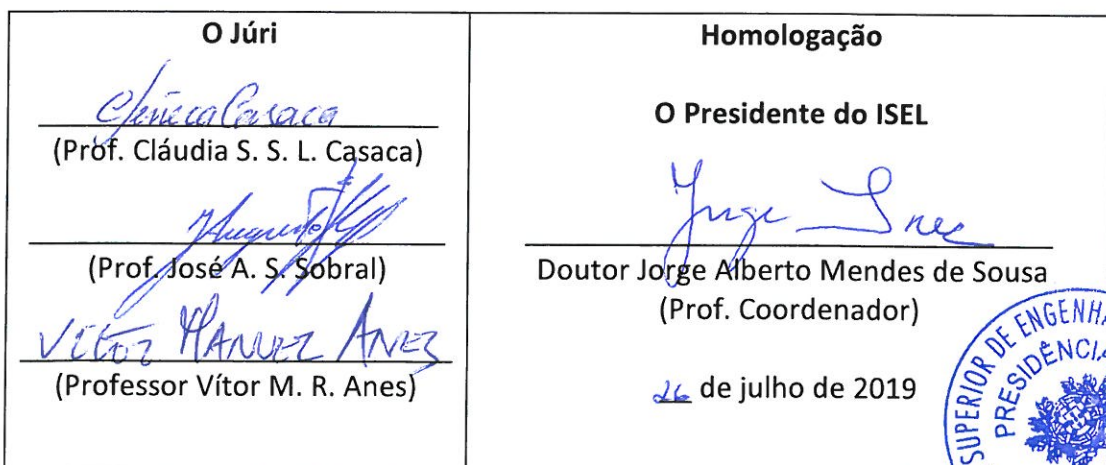 O Júri
Cláudia Casaca
(Prof. Cláudia S. S. L. Casaca)
(Prof. José A. S. Sobral)
Vitor Manuel Anes
(Professor Vítor M. R. Anes)
Homologação
O Presidente do ISEL
Jorge
Doutor Jorge Alberto Mendes de Sousa
(Prof. Coordenador)
26 de julho de 2019
SUPERIOR DE ENGENHA
PRESIDÊNCIA